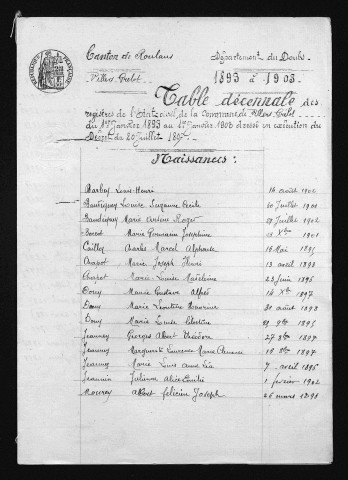 Canton de Roulans
Département du Doubs
Villers Grélot
1893 à 1903
Table décennale des
registres de l'Etat civil de la Commune de Villers Grélot
du 1er Janvier 1893 au 1er Janvier 1903 dressé en exécution du
Décret du 20 Juillet 1807
Naissances :
Barbey Louis Henri 14 août 1902
Louise Suzanne Cécile 20 Juillet 1901
Marie Antoine Roger 29 Juillet 1902
Marie Germaine Joséphine 1901
Cailley Charles Marcel Alphonse 16 Mai 1895
Chavot Marie Joseph Henri 13 avril 1893
Charot Marie Louise Madeleine 23 Juin 1896
Dony Marie Gustave Alfred 14 Xbre 1897
Dony Marie Léontine Honorine 31 août 1893
Dony Marie Louise Célestine 9bre 1895
Jeanney Georges Albert Théodore 27 8bre 1897
Jeanney Marguerite Laurence Marie 18 8bre 1897
Jeanney Marie Louis 7 avril 1896
Jeannin Juliana Alice Emilie 1 février 1902
Mourey Albert félicien Joseph 26 mars 1898